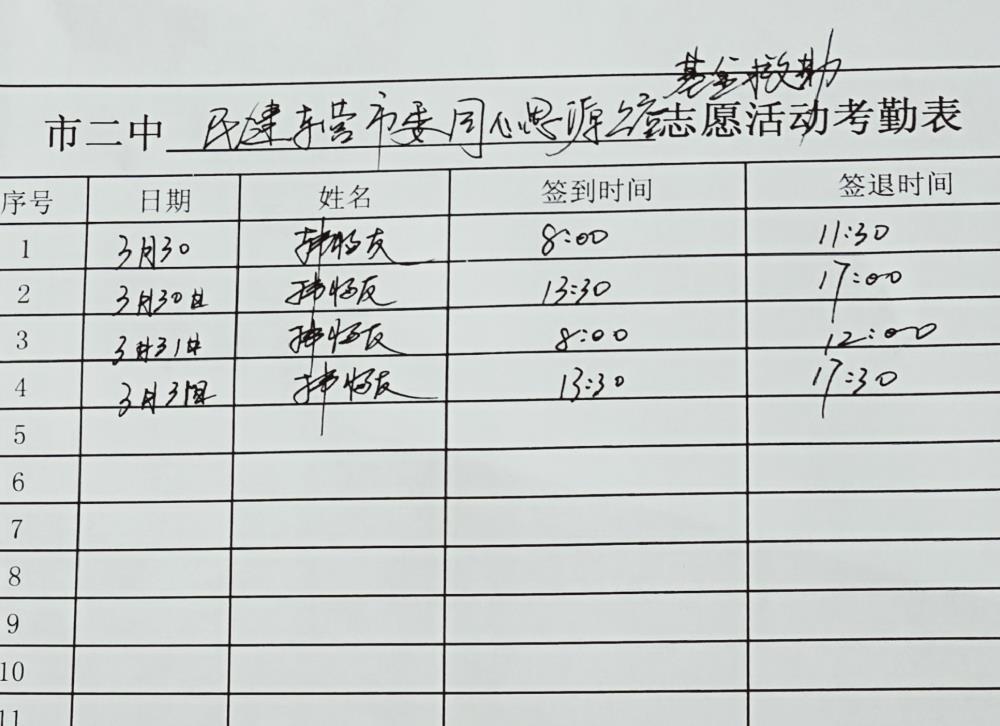 基金救助
市二中 民建东营市委同心思源 志愿活动考勤表
序号 日期 姓名 签到时间 签退时间
1 3月30 8:00 11:30
2 3月30日 13:30 17:00
3 3月31日 8:00 12:00
4 3月31日 13:30 17:30
5
6
7
8
9
10
11